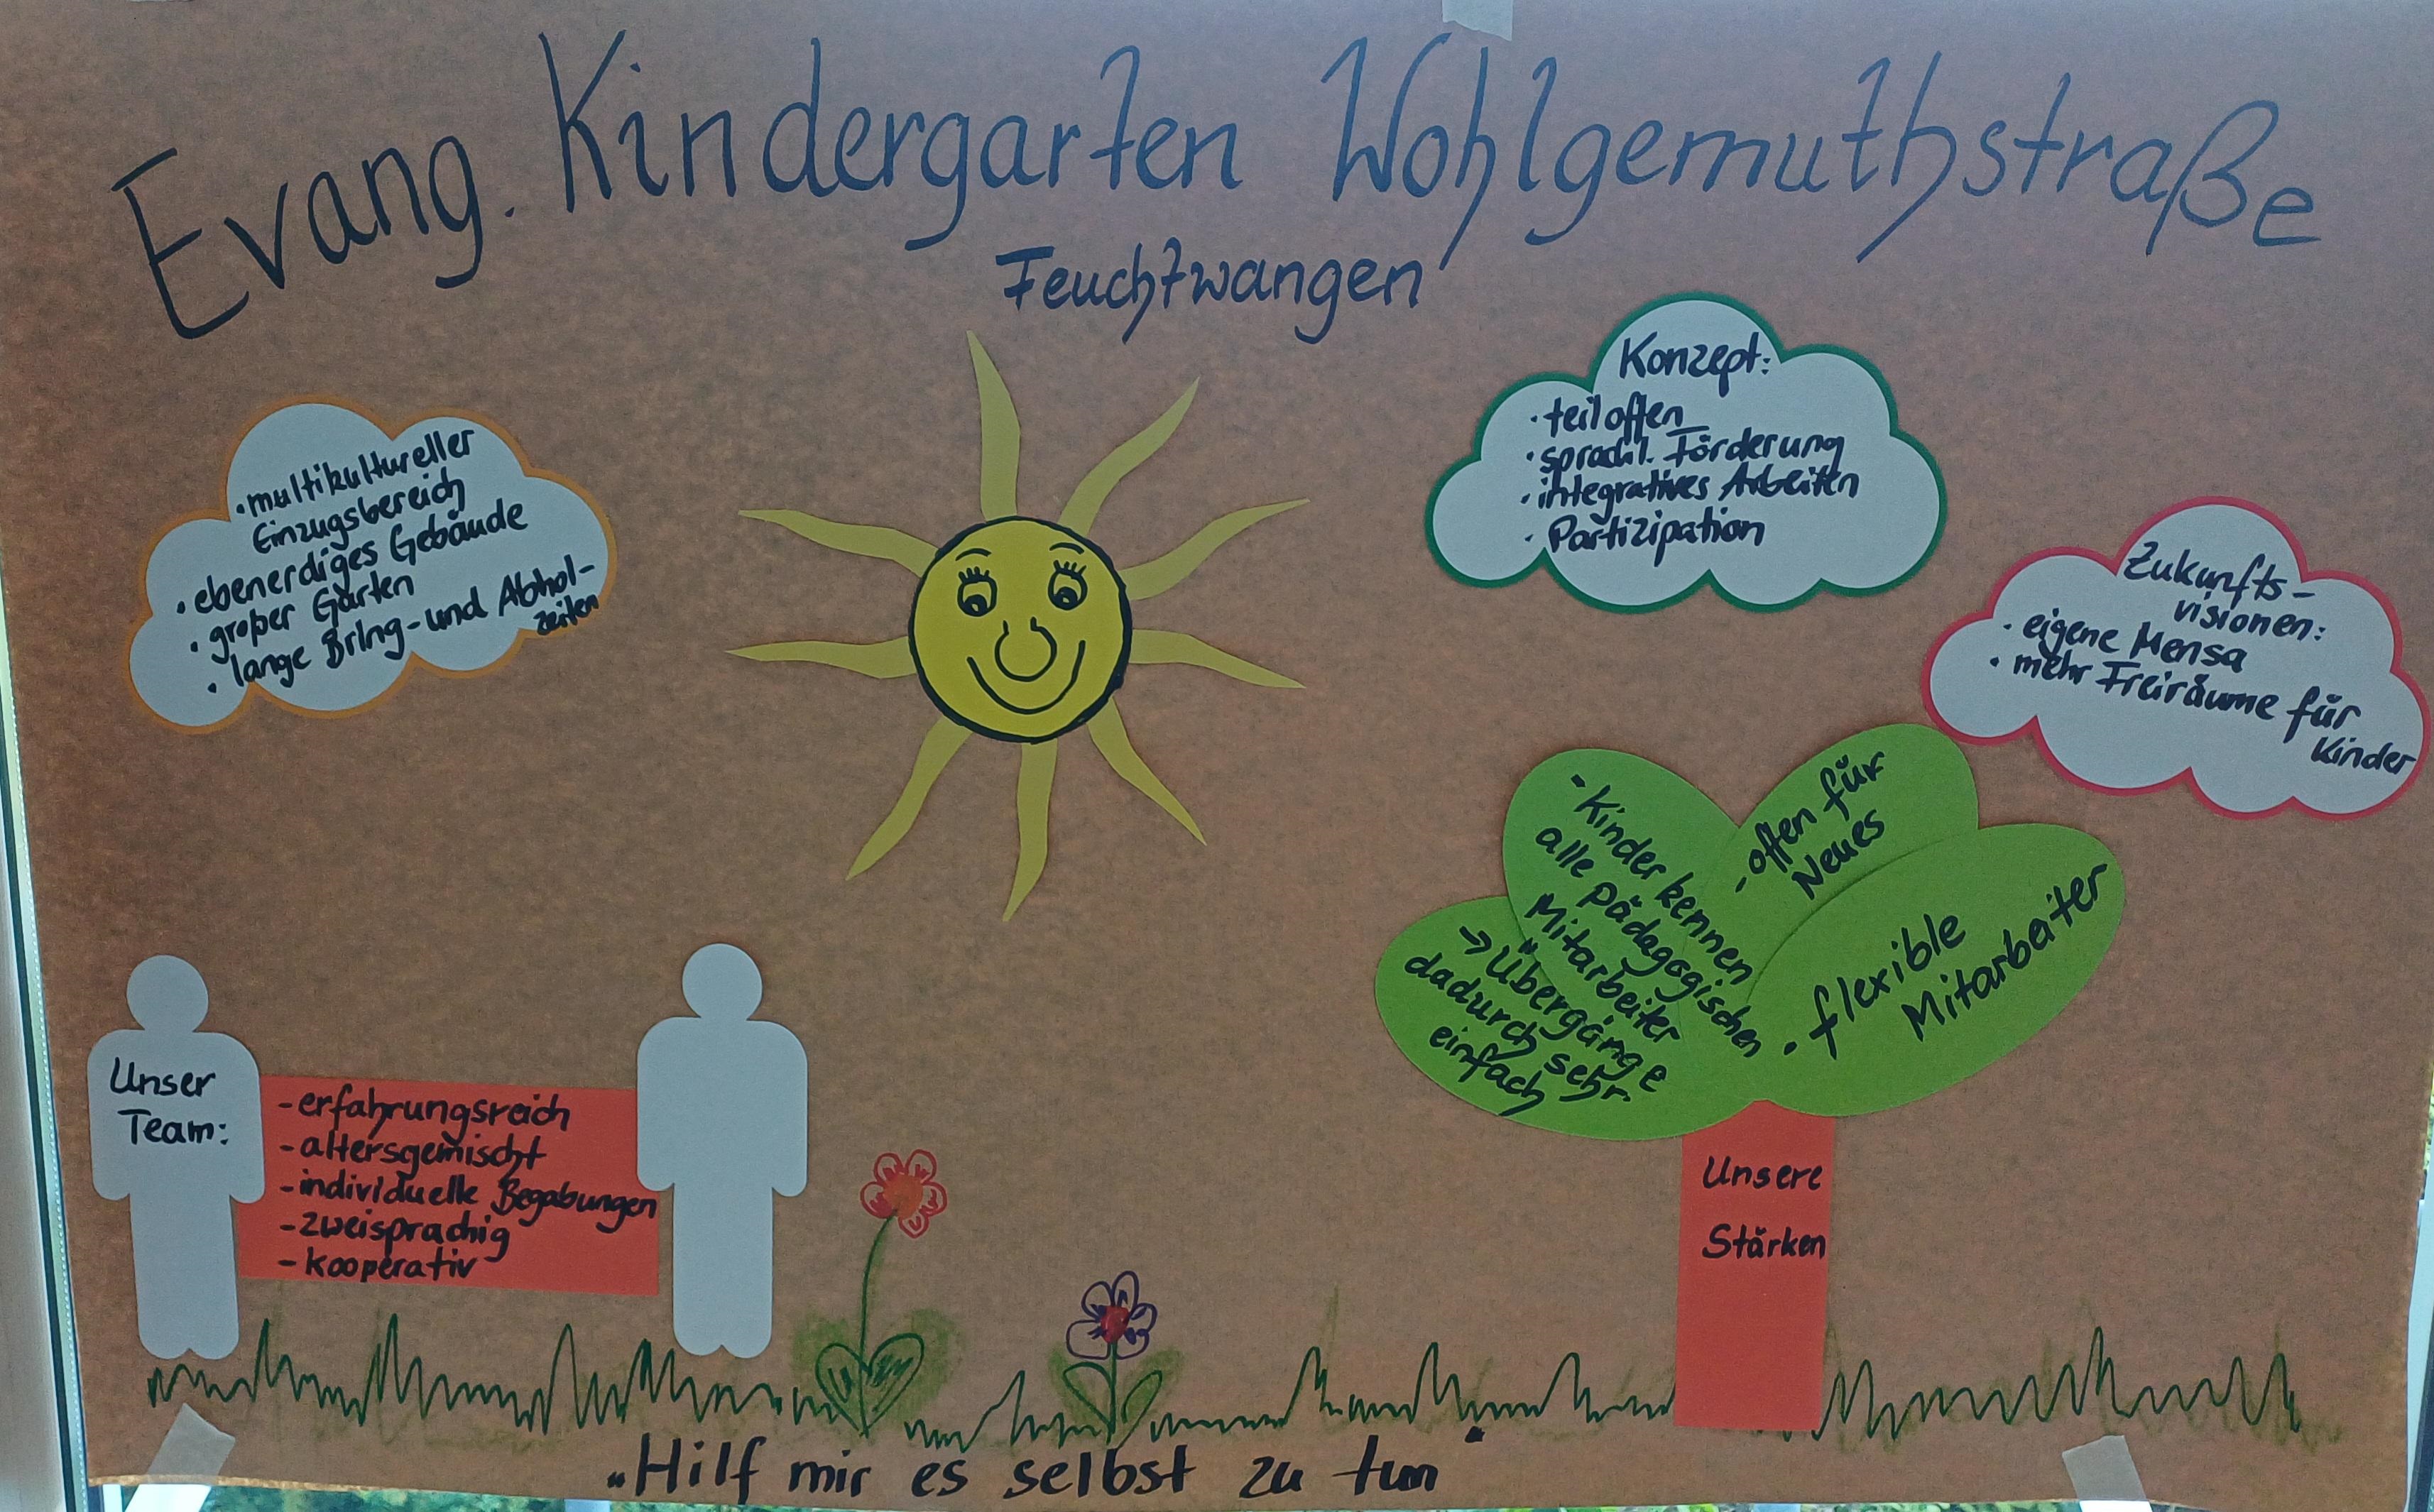 Evang. Kindergarten Wohlgemuthstraße
Feuchtwangen
· multikultureller
Einzugsbereich
· ebenerdiges Gebäude
· großer Garten
· lange Bring- und Abhol-
zeiten
Konzept:
· teiloffen
· sprachl. Förderung
· integratives Arbeiten
· Partizipation
Zukunfts-
visionen:
· eigene Mensa
· mehr Freiräume für
Kinder
· Kinder kennen
alle pädagogischen
Mitarbeiter
→ Übergänge
dadurch sehr
einfach
- offen für
Neues
· flexible
Mitarbeiter
Unsere
Stärken
Unser
Team:
- erfahrungsreich
- altersgemischt
- individuelle Begabungen
- zweisprachig
- kooperativ
„Hilf mir es selbst zu tun"